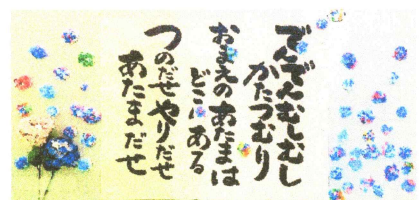 でんでんむしむし
かたつむり
おまえのあたまは
どこにある
つのだせやりだせ
あたまだせ